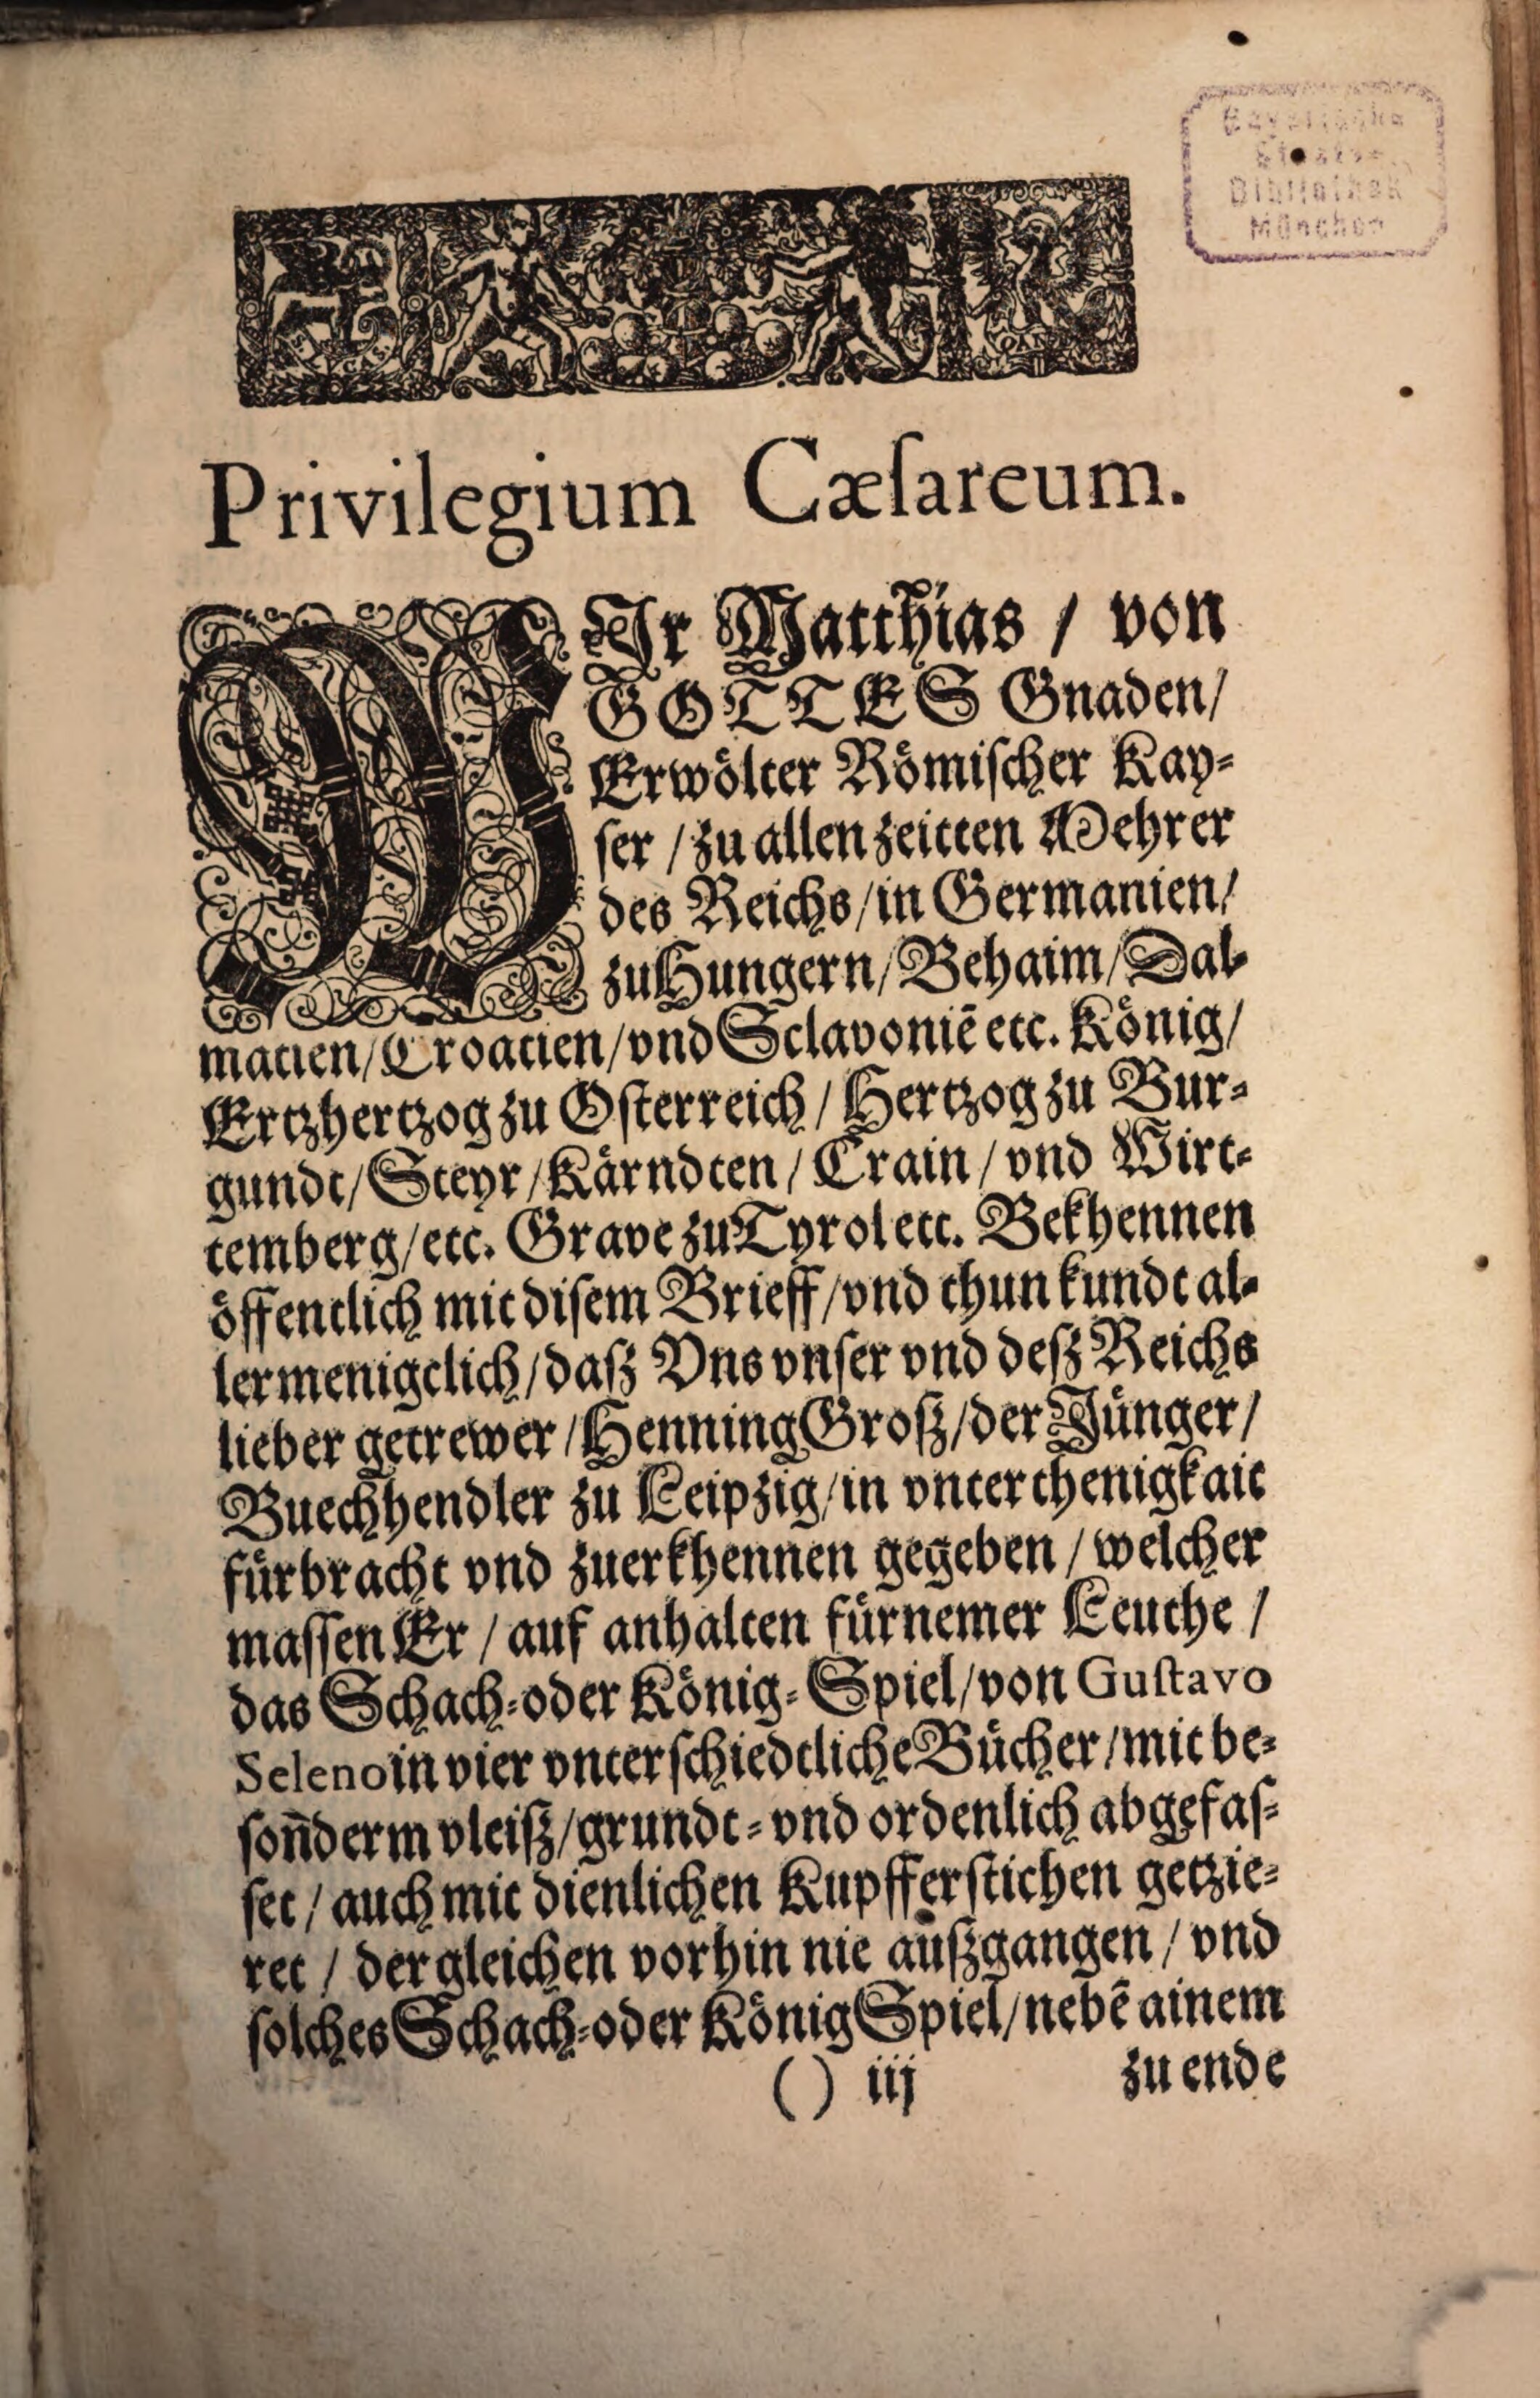 Bayerische
Staats-
Bibliothek
München
Privilegium Cæſareum.
WIr Matthias / von
GOTTES Gnaden/
Erwoͤlter Roͤmiſcher Kay⸗
ſer / zu allen zeitten Mehrer
des Reichs/in Germanien/
zu Hungern/Behaim/Dal⸗
matien/Croatien/vnd Sclavoniē etc. Koͤnig/
Ertzhertzog zu Oſterreich / Hertzog zu Bur⸗
gundt/Steyr/Kaͤrndten / Crain / vnd Wirt⸗
temberg/etc. Grave zu Tyrol etc. Bekhennen
oͤffentlich mit diſem Brieff/vnd thun kundt al⸗
lermenigclich/daſz Vns vnſer vnd deſz Reichs
lieber getrewer /Henning Groſz/der Juͤnger/
Buechhendler zu Leipzig/in vnterthenigkait
fuͤrbracht vnd zuerkhennen gegeben / welcher
maſſen Er / auf anhalten fuͤrnemer Leuthe /
das Schach⸗oder Koͤnig⸗Spiel/von Guſtavo
Seleno in vier vnterſchiedtliche Buͤcher/mit be⸗
ſon̄derm vleiſz/grundt⸗vnd ordenlich abgefaſ⸗
ſet / auch mit dienlichen Kupfferſtichen getzie⸗
ret / dergleichen vorhin nie auſzgangen / vnd
ſolches Schach⸗oder Koͤnig Spiel/nebē ainem
( ) iij zu ende